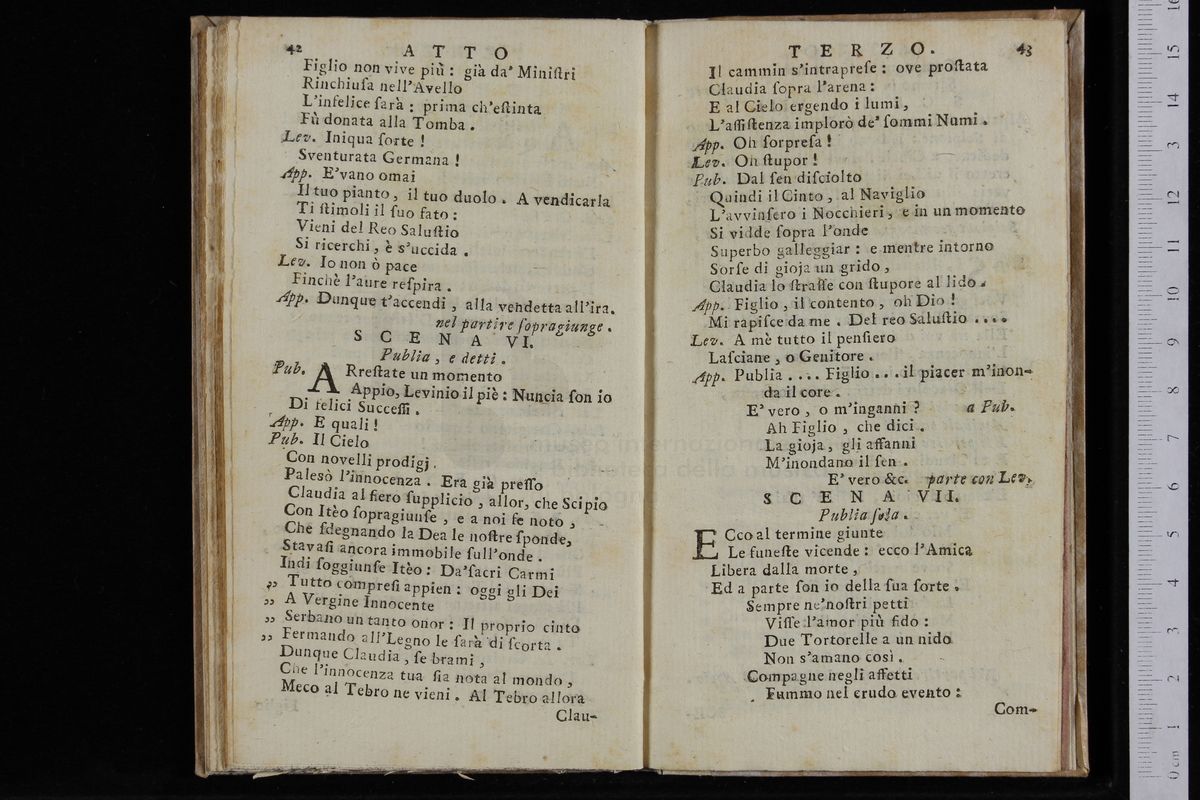 42 ATTO
Figlio non vive più : già da' Miniſtri
Rinchiuſa nell'Avello
L'infelice ſarà : prima ch'eſtinta
Fù donata alla Tomba .
Lev. Iniqua ſorte !
Sventurata Germana !
App. E'vano omai
Il tuo pianto , il tuo duolo . A vendicarla
Ti ſtimoli il ſuo fato :
Vieni del Reo Saluſtio
Si ricerchi , è s'uccida .
Lev. Io non ò pace
Finchè l'aure reſpira .
App. Dunque t'accendi , alla vendetta all'ira.
nel partire ſopragiunge .
SCENA VI.
Publia , e detti .
Pub. ARreſtate un momento
Appio, Levinio il piè : Nuncia ſon io
Di felici Succeſſi .
App. E quali !
Pub. Il Cielo
Con novelli prodigj .
Palesò l'innocenza . Era già preſſo
Claudia al fiero ſupplicio , allor, che Scipio
Con Itèo ſopragiunſe , e a noi fe noto ,
Che ſdegnando la Dea le noſtre ſponde,
Stavaſi ancora immobile full'onde .
Indi ſoggiunſe Itèo : Da'ſacri Carmi
,, Tutto compreſi appien : oggi gli Dei
,, A Vergine Innocente
,, Serbano un tanto onor : Il proprio cinto
,, Fermando all'Legno le ſarà di ſcorta .
Dunque Claudia , ſe brami ,
Che l'innocenza tua ſia nota al mondo ,
Meco al Tebro ne vieni . Al Tebro allora
Clau-
TERZO. 43
Il cammin s'intrapreſe : ove proſtata
Claudia ſopra l'arena :
E al Cielo ergendo i lumi ,
L'aſſiſtenza implorò de' ſommi Numi .
App. Oh ſorpreſa !
Lev. Oh ſtupor !
Pub. Dal ſen diſciolto
Quindi il Cinto , al Naviglio
L'avvinſero i Nocchieri , e in un momento
Si vidde ſopra l'onde
Superbo galleggiar : e mentre intorno
Sorſe di gioja un grido ,
Claudia lo ſtraſſe con ſtupore al lido .
App. Figlio , il contento , oh Dio !
Mi rapiſce da me . Del reo Saluſtio ....
Lev. A mè tutto il penſiero
Laſciane , o Genitore .
App. Publia .... Figlio ... il piacer m'inon-
da il core .
E' vero , o m'inganni ? a Pub.
Ah Figlio , che dici .
La gioja , gli affanni
M'inondano il ſen .
E' vero &c. parte con Lev.
SCENA VII.
Publia ſola .
ECco al termine giunte
Le funeſte vicende : ecco l'Amica
Libera dalla morte ,
Ed a parte ſon io della ſua ſorte .
Sempre ne'noſtri petti
Viſſe l'amor più fido :
Due Tortorelle a un nido
Non s'amano così .
Compagne negli affetti
Fummo nel crudo evento :
Com-
museo internazionale
biblioteca della musica
0 cm 1 2 3 4 5 6 7 8 9 10 11 12 13 14 15 16